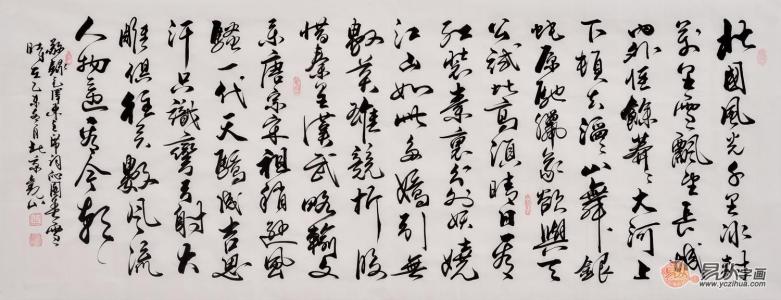 北国风光千里冰封
万里雪飘望长城
内外惟馀莽莽大河上
下顿失滔滔山舞银
蛇原驰蜡象欲与天
公试比高须晴日看
红装素裹分外妖娆
江山如此多娇引无
数英雄竞折腰
惜秦皇汉武略输文
采唐宗宋祖稍逊风
骚一代天骄成吉思
汗只识弯弓射大
雕俱往矣数风流
人物还看今朝
毛泽东主席词沁园春雪
时在乙未年 月于京
易从字画
www.yczihua.com